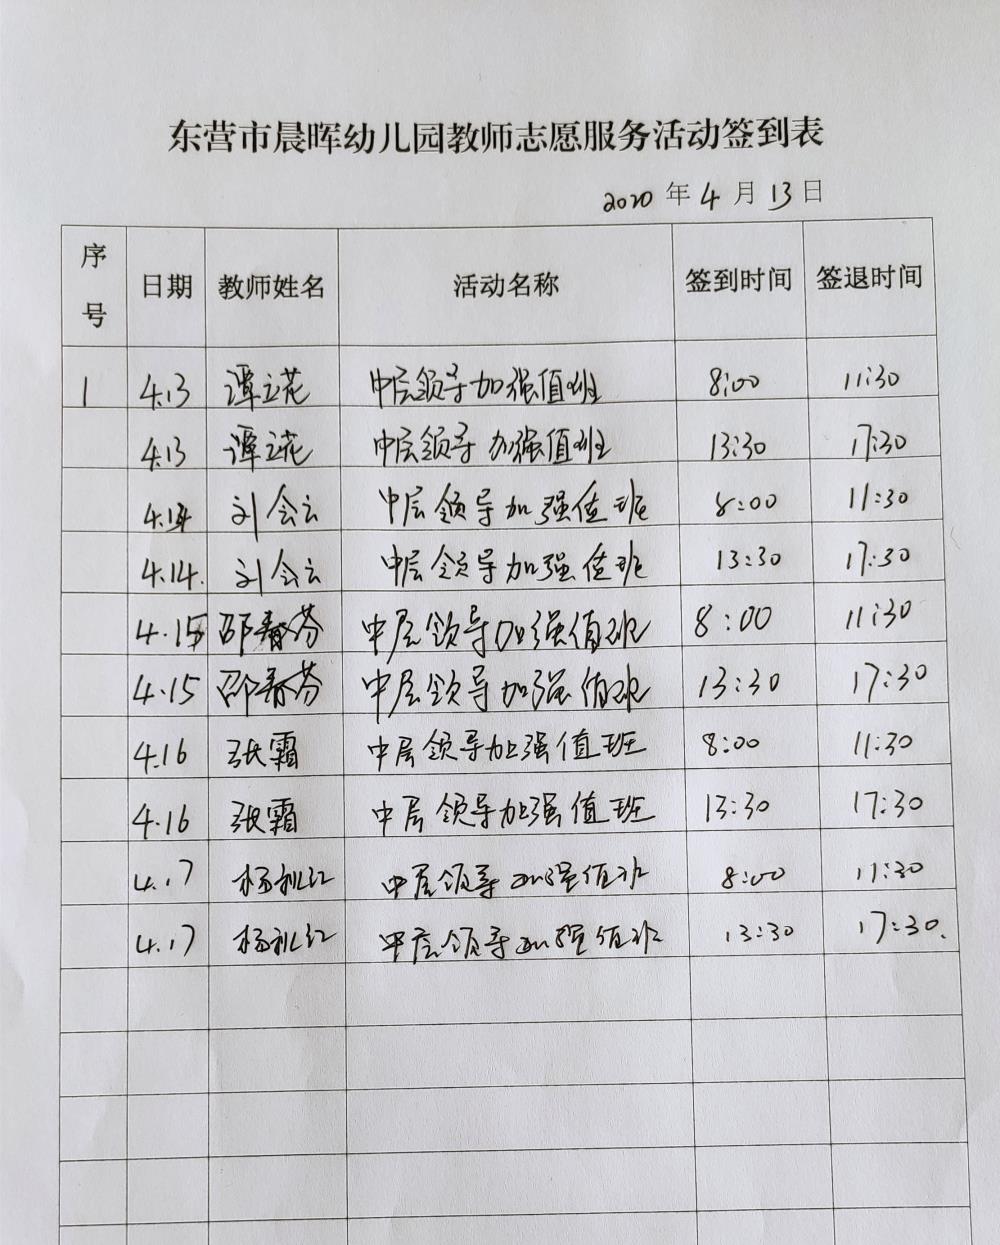 东营市晨晖幼儿园教师志愿服务活动签到表
2020 年 4 月 13 日
序号 日期 教师姓名 活动名称 签到时间 签退时间
1 4.13 谭立花 中层领导加强值班 8:00 11:30
4.13 谭立花 中层领导加强值班 13:30 17:30
4.14 刘会云 中层领导加强值班 8:00 11:30
4.14. 刘会云 中层领导加强值班 13:30 17:30
4.15 邵春芬 中层领导加强值班 8:00 11:30
4.15 邵春芬 中层领导加强值班 13:30 17:30
4.16 张霜 中层领导加强值班 8:00 11:30
4.16 张霜 中层领导加强值班 13:30 17:30
4.17 杨礼红 中层领导加强值班 8:00 11:30
4.17 杨礼红 中层领导加强值班 13:30 17:30.